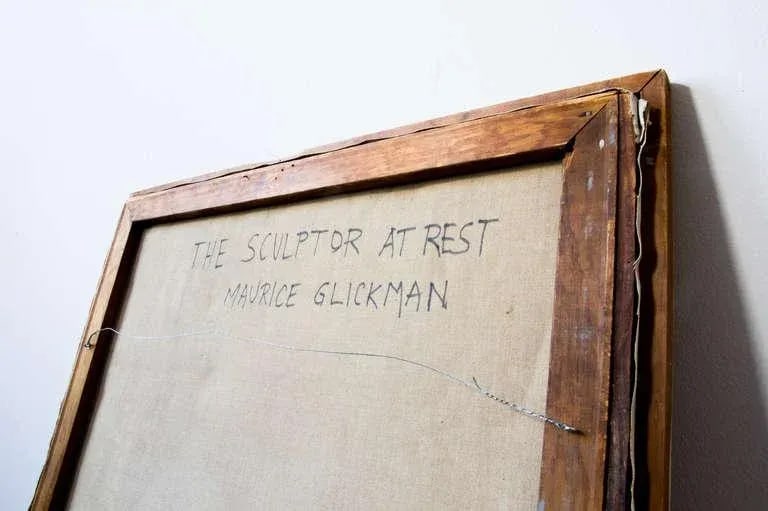 THE SCULPTOR AT REST
MAURICE GLICKMAN